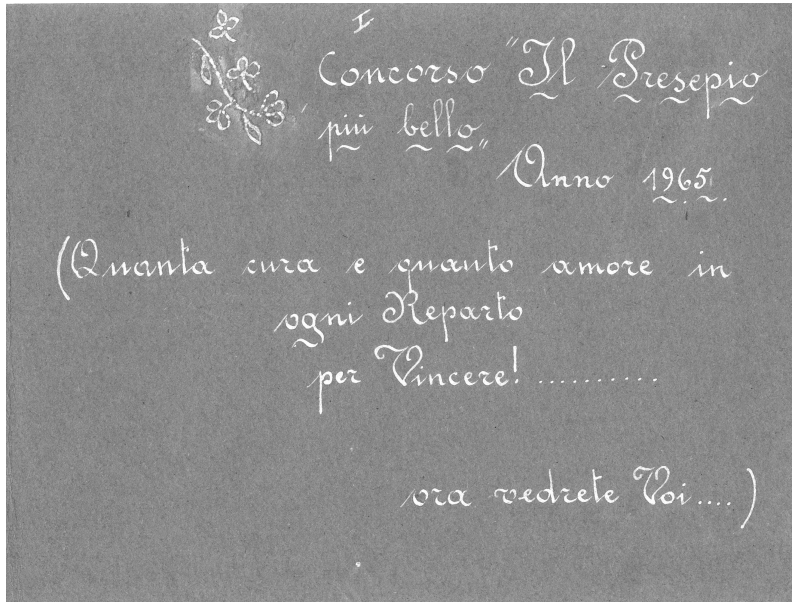 I
Concorso "Il Presepio
più bello„
Anno 1965.
(Quanta cura e quanto amore in
ogni Reparto
per Vincere! ..........
ora vedrete Voi....)